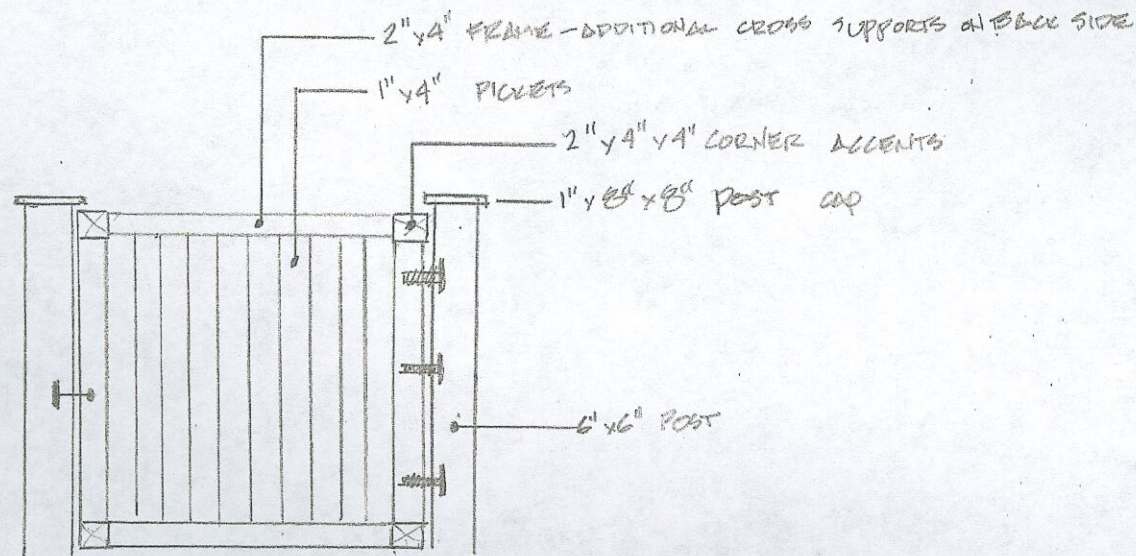 2"x4" FRAME - ADDITIONAL CROSS SUPPORTS ON BACK SIDE
1"x4" PICKETS
2"x4"x4" CORNER ACCENTS
1"x8"x8" POST CAP
6"x6" POST